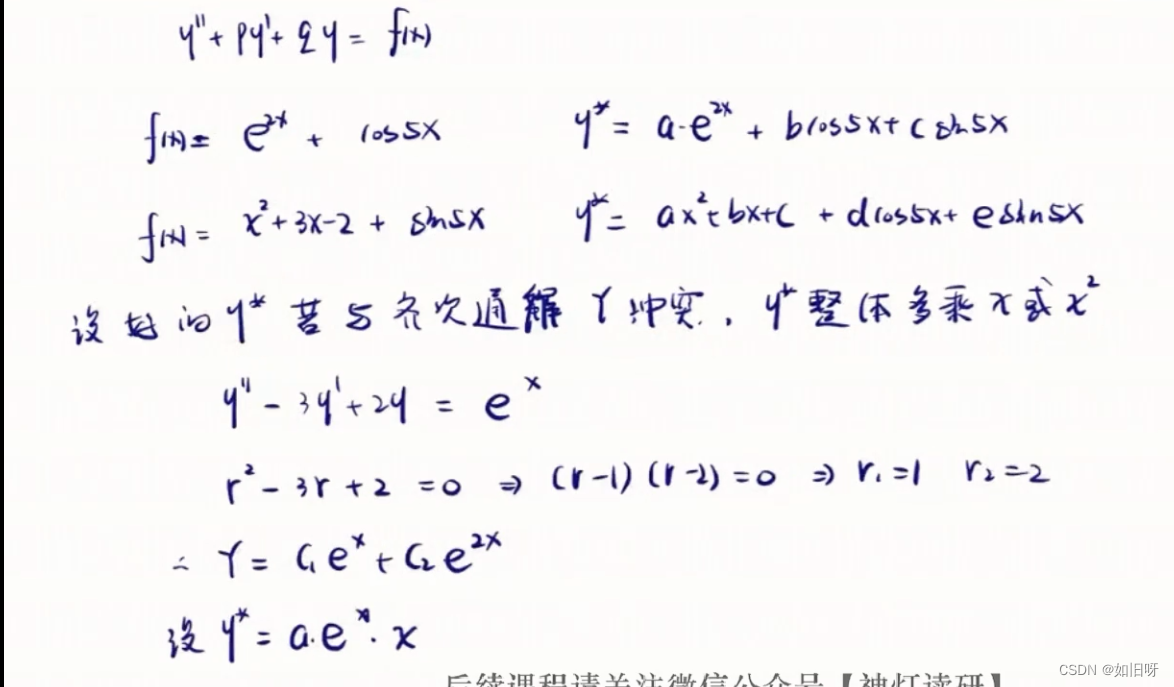 y''+py'+qy=f(x)
f(x)= e^{2x} + cos5x y*= a·e^{2x} + bcos5x+csin5x
f(x)= x²+3x-2 + sin5x y*= ax²+bx+c + dcos5x+esin5x
设好的y*若与齐次通解Y冲突，y*整体多乘x或x²
y''-3y'+2y = e^x
r²-3r+2=0 ⇒ (r-1)(r-2)=0 ⇒ r₁=1 r₂=2
∴ Y= C₁e^x+C₂e^{2x}
设 y*= a·e^x·x
后续课程请关注微信公众号【神灯读研】
CSDN @如旧呀